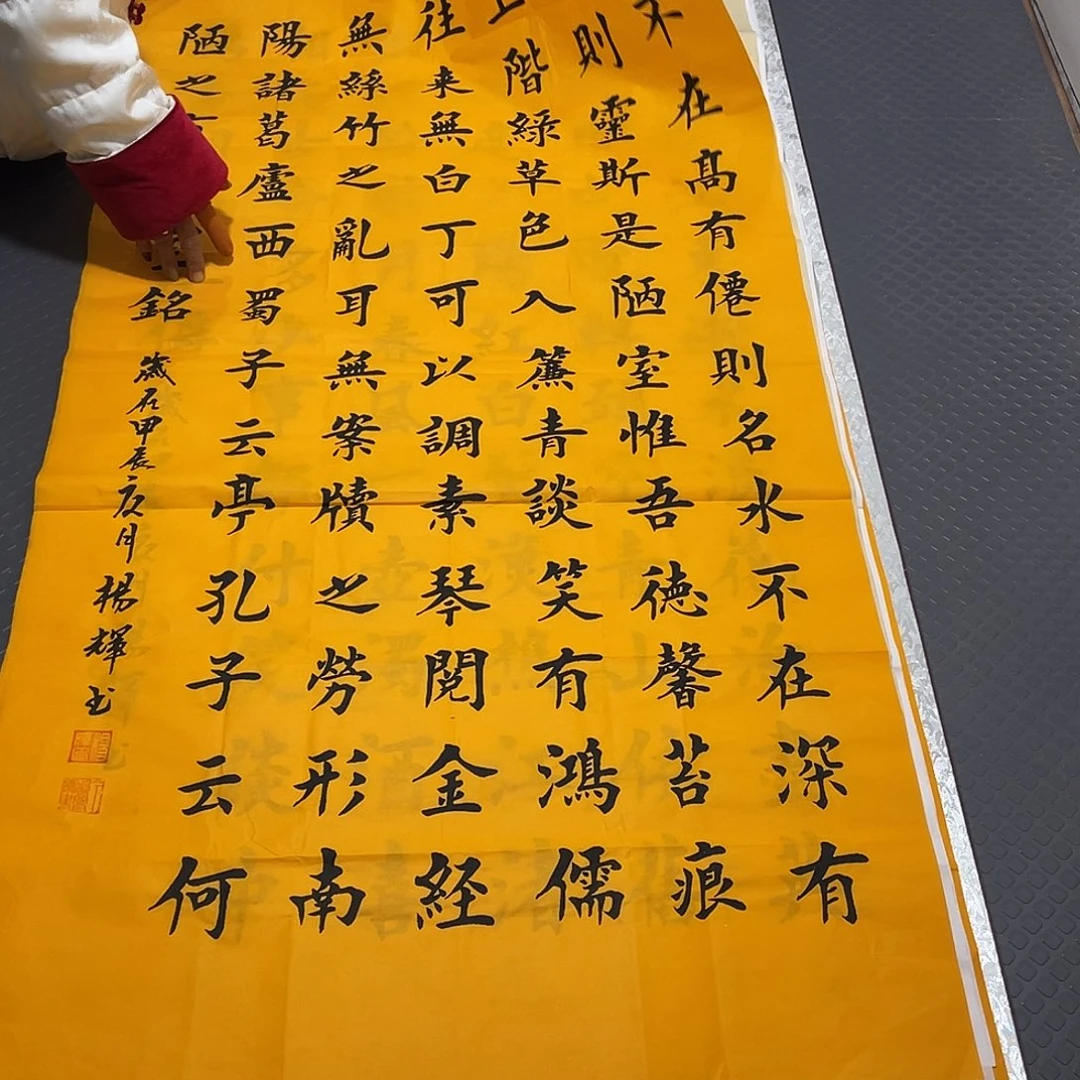 不在高有僊則名水不在深有
則靈斯是陋室惟吾德馨苔痕
上階綠草色入簾青談笑有鴻儒
往来無白丁可以調素琴閱金経
無絲竹之亂耳無案牘之勞形南
陽諸葛廬西蜀子云亭孔子云何
陋之 銘
歲在甲辰 月楊輝书